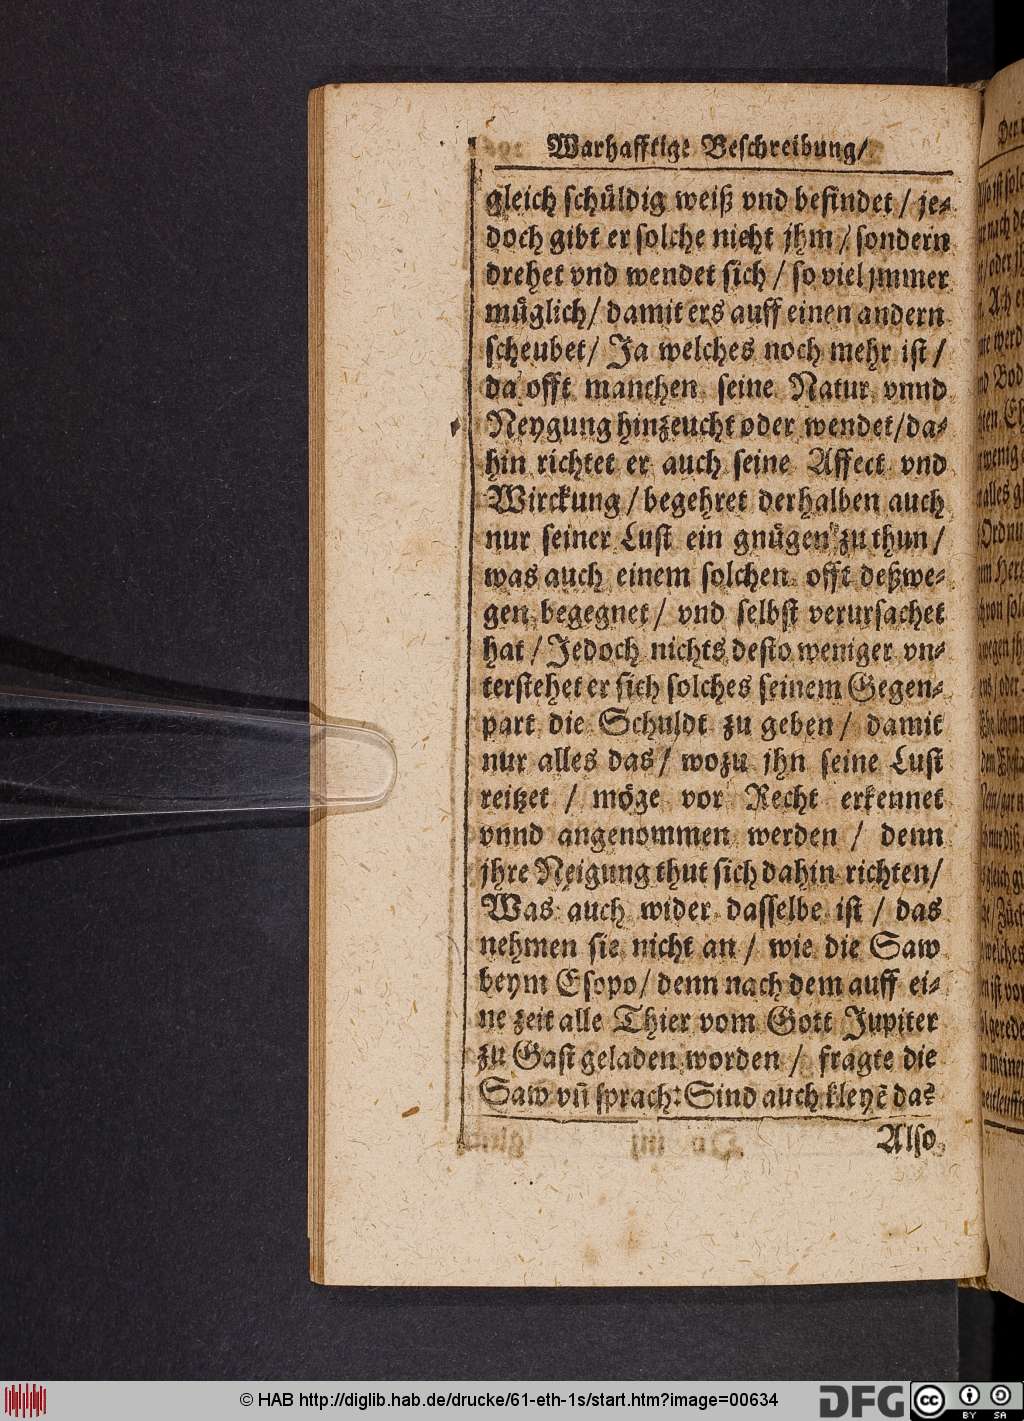 Warhafftige Beschreibung/
gleich schuͤldig weiß vnd befindet / je-
doch gibt er solche nicht jhm / sondern
drehet vnd wendet sich / so viel jmmer
muͤglich/ damit ers auff einen andern
scheubet/ Ja welches noch mehr ist /
da offt manchen seine Natur vnnd
Neygung hinzeucht oder wendet/da-
hin richtet er auch seine Affect vnd
Wirckung / begehret derhalben auch
nur seiner Lust ein gnuͤgen zu thun /
was auch einem solchen offt deßwe-
gen begegnet / vnd selbst verursachet
hat / Jedoch nichts desto weniger vn-
terstehet er sich solches seinem Gegen-
part die Schuldt zu geben / damit
nur alles das / wozu jhn seine Lust
reitzet / moͤge vor Recht erkennet
vnnd angenommen werden / denn
jhre Neigung thut sich dahin richten/
Was auch wider dasselbe ist / das
nehmen sie nicht an / wie die Saw
beym Esopo/ denn nach dem auff ei-
ne zeit alle Thier vom Gott Jupiter
zu Gast geladen worden / fragte die
Saw vñ sprach: Sind auch kleyẽ da?
Also
© HAB http://diglib.hab.de/drucke/61-eth-1s/start.htm?image=00634
DFG
cc BY SA